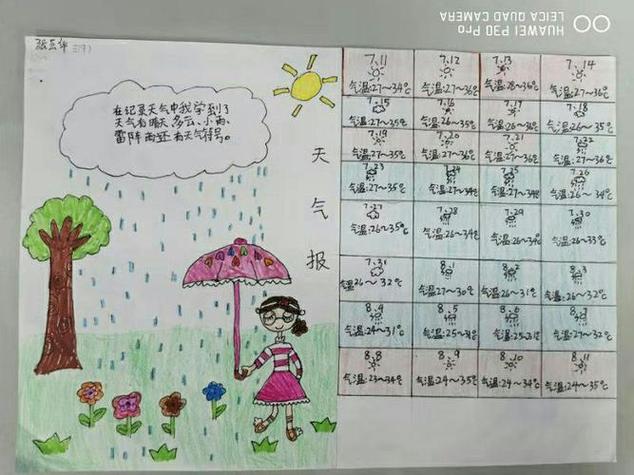 在记录天气中我学到了
天气有晴天、多云、小雨、
雷阵雨还有天气符号。
天
气
报
7.11 7.12 7.13 7.14
气温:27~34℃ 气温:27~36℃ 气温:28~36℃ 气温:27~36℃
7.15 7.16 7.17 7.18
气温:27~35℃ 气温:26~35℃ 气温:26~36℃ 气温:26~35℃
7.19 7.20 7.21 7.22
气温:27~35℃ 气温:27~36℃ 气温:27~36℃ 气温:27~36℃
7.23 7.24 7.25 7.26
气温:27~35℃ 气温:27~34℃ 气温:27~34℃ 气温:26~34℃
7.27 7.28 7.29 7.30
气温:26~35℃ 气温:26~34℃ 气温:26~34℃ 气温:26~33℃
7.31 8.1 8.2 8.3
气温26~32℃ 气温:27~30℃ 气温:26~31℃ 气温:26~32℃
8.4 8.5 8.6 8.7
气温:24~31℃ 气温:25~31℃ 气温:25~31℃ 气温:27~32℃
8.8 8.9 8.10 8.11
气温:23~34℃ 气温:24~35℃ 气温:24~34℃ 气温:24~35℃
HUAWEI P30 Pro
LEICA QUAD CAMERA